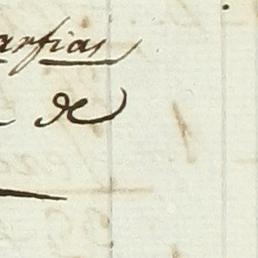 arfias
de